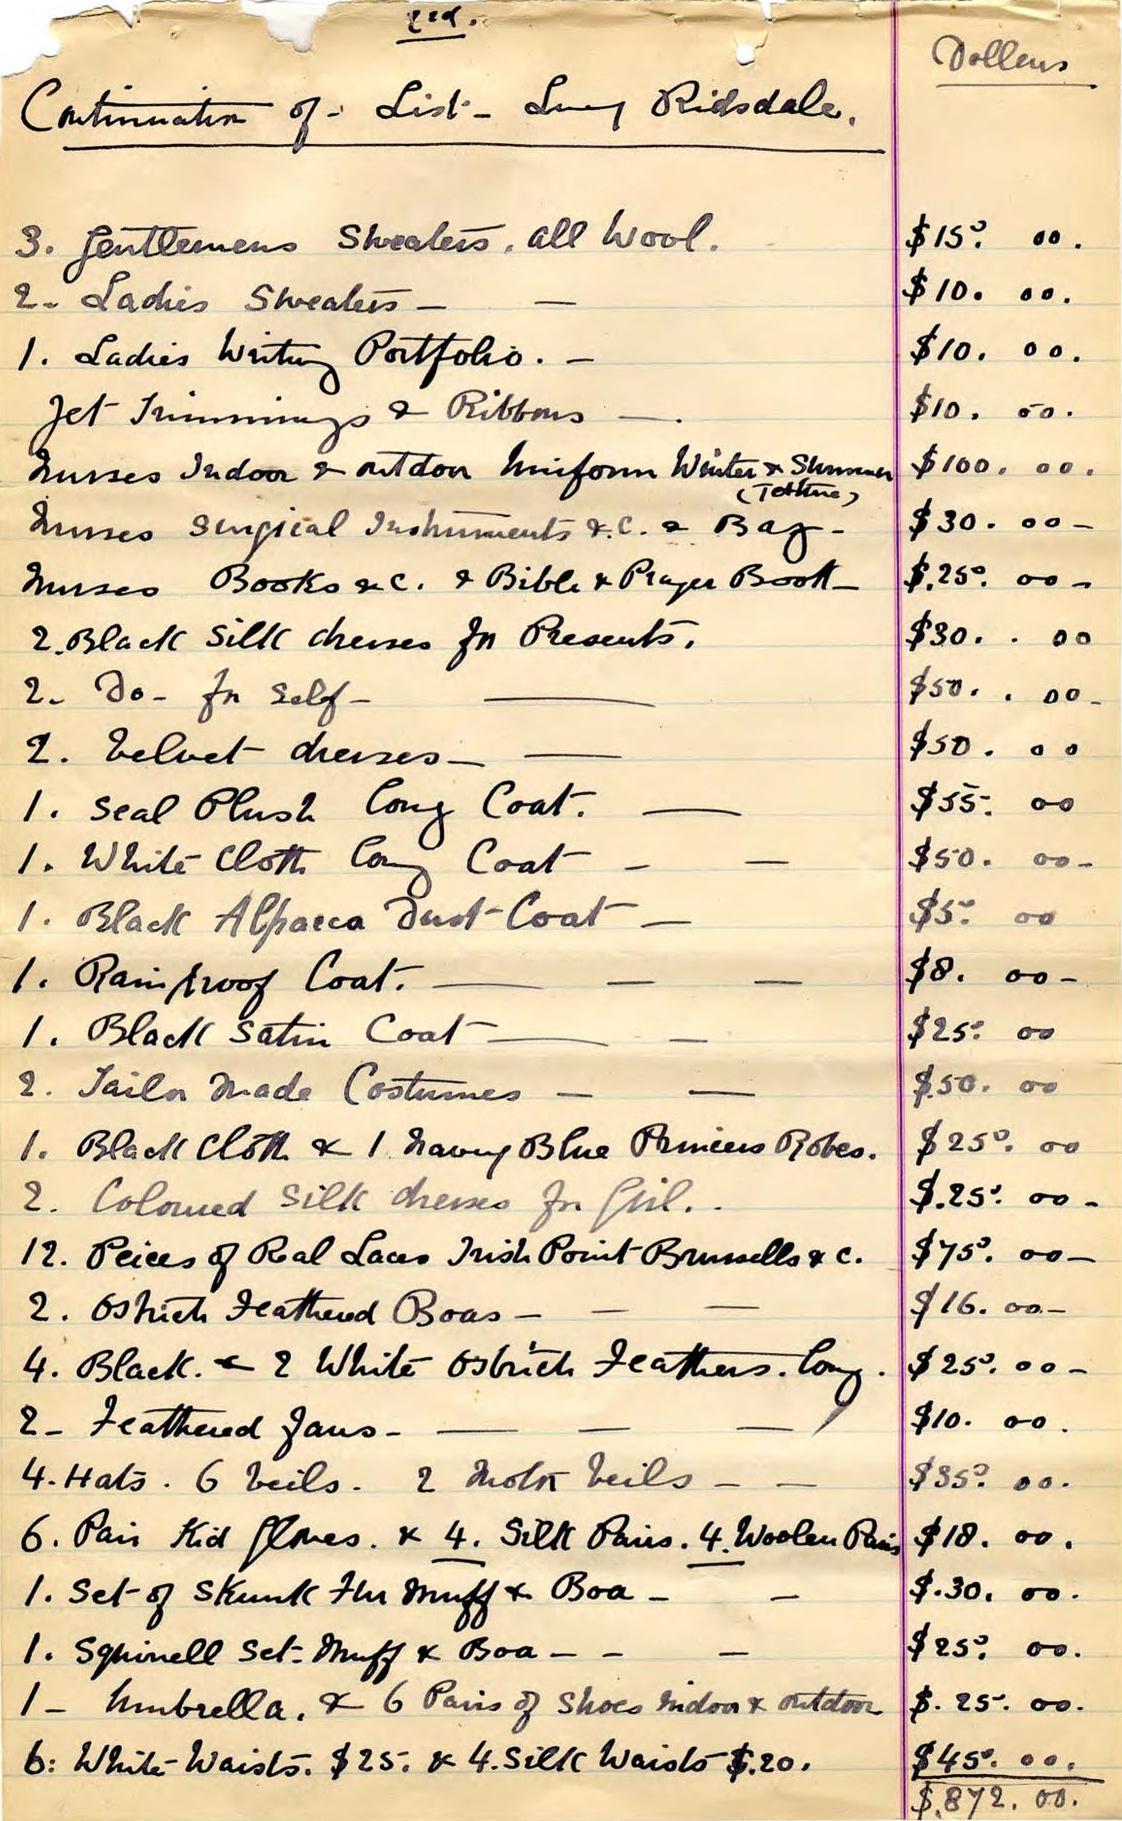 2nd.
Dollars
Continuation of - List - Lucy Ridsdale.
3. Gentlemens Sweaters, all Wool. $15. 00.
2 - Ladies Sweaters — — $10. 00.
1. Ladies Writing Portfolio. - $10. 00.
Jet Trimmings & Ribbons — . $10. 00.
Nurses Indoor & outdoor Uniform Winter & Summer $100. 00.
Nurses Surgical Instruments &.C. & Bag - $30. 00 -
Nurses Books &c. & Bible & Prayer Book — $.25. 00 -
2. Black Silk dresses for Presents. $30. . 00
2 - Do - for Self - — $50. . 00 -
2. Velvet dresses — — $50. 00
1. Seal Plush long Coat. — $55. 00
1. White Cloth long Coat - — $50. 00 -
1. Black Alpacca Dust-Coat — $5. 00
1. Rainproof Coat. — — — $8. 00 -
1. Black Satin Coat — — $25. 00
2. Tailor Made Costumes — — $50. 00
1. Black Cloth & 1 Navy Blue Princess Robes. $25. 00
2. Coloured Silk dresses for Girl. . $.25. 00 -
12. Peices of Real Laces Irish Point Brussells & c. $75. 00 —
2. Ostrich Feathered Boas — — — $16. 00. —
4. Black. & 2 White Ostrich Feathers. long. $25. 00 -
2 - Feathered Fans - — — — $10. 00.
4. Hats. 6 Veils. 2 Motor Veils — — $35. 00.
6. Pair Kid Gloves. & 4. Silk Pairs. 4. Woolen Pairs $18. 00.
1. Set of Skunk Fur Muff & Boa — — $.30. 00.
1. Squirrell Set - Muff & Boa — - — $25. 00.
1 - Umbrella. & 6 Pairs of Shoes Indoor & outdoor $. 25. 00.
6: White Waists. $25. & 4. Silk Waists $.20. $45. 00.
$.872. 00.